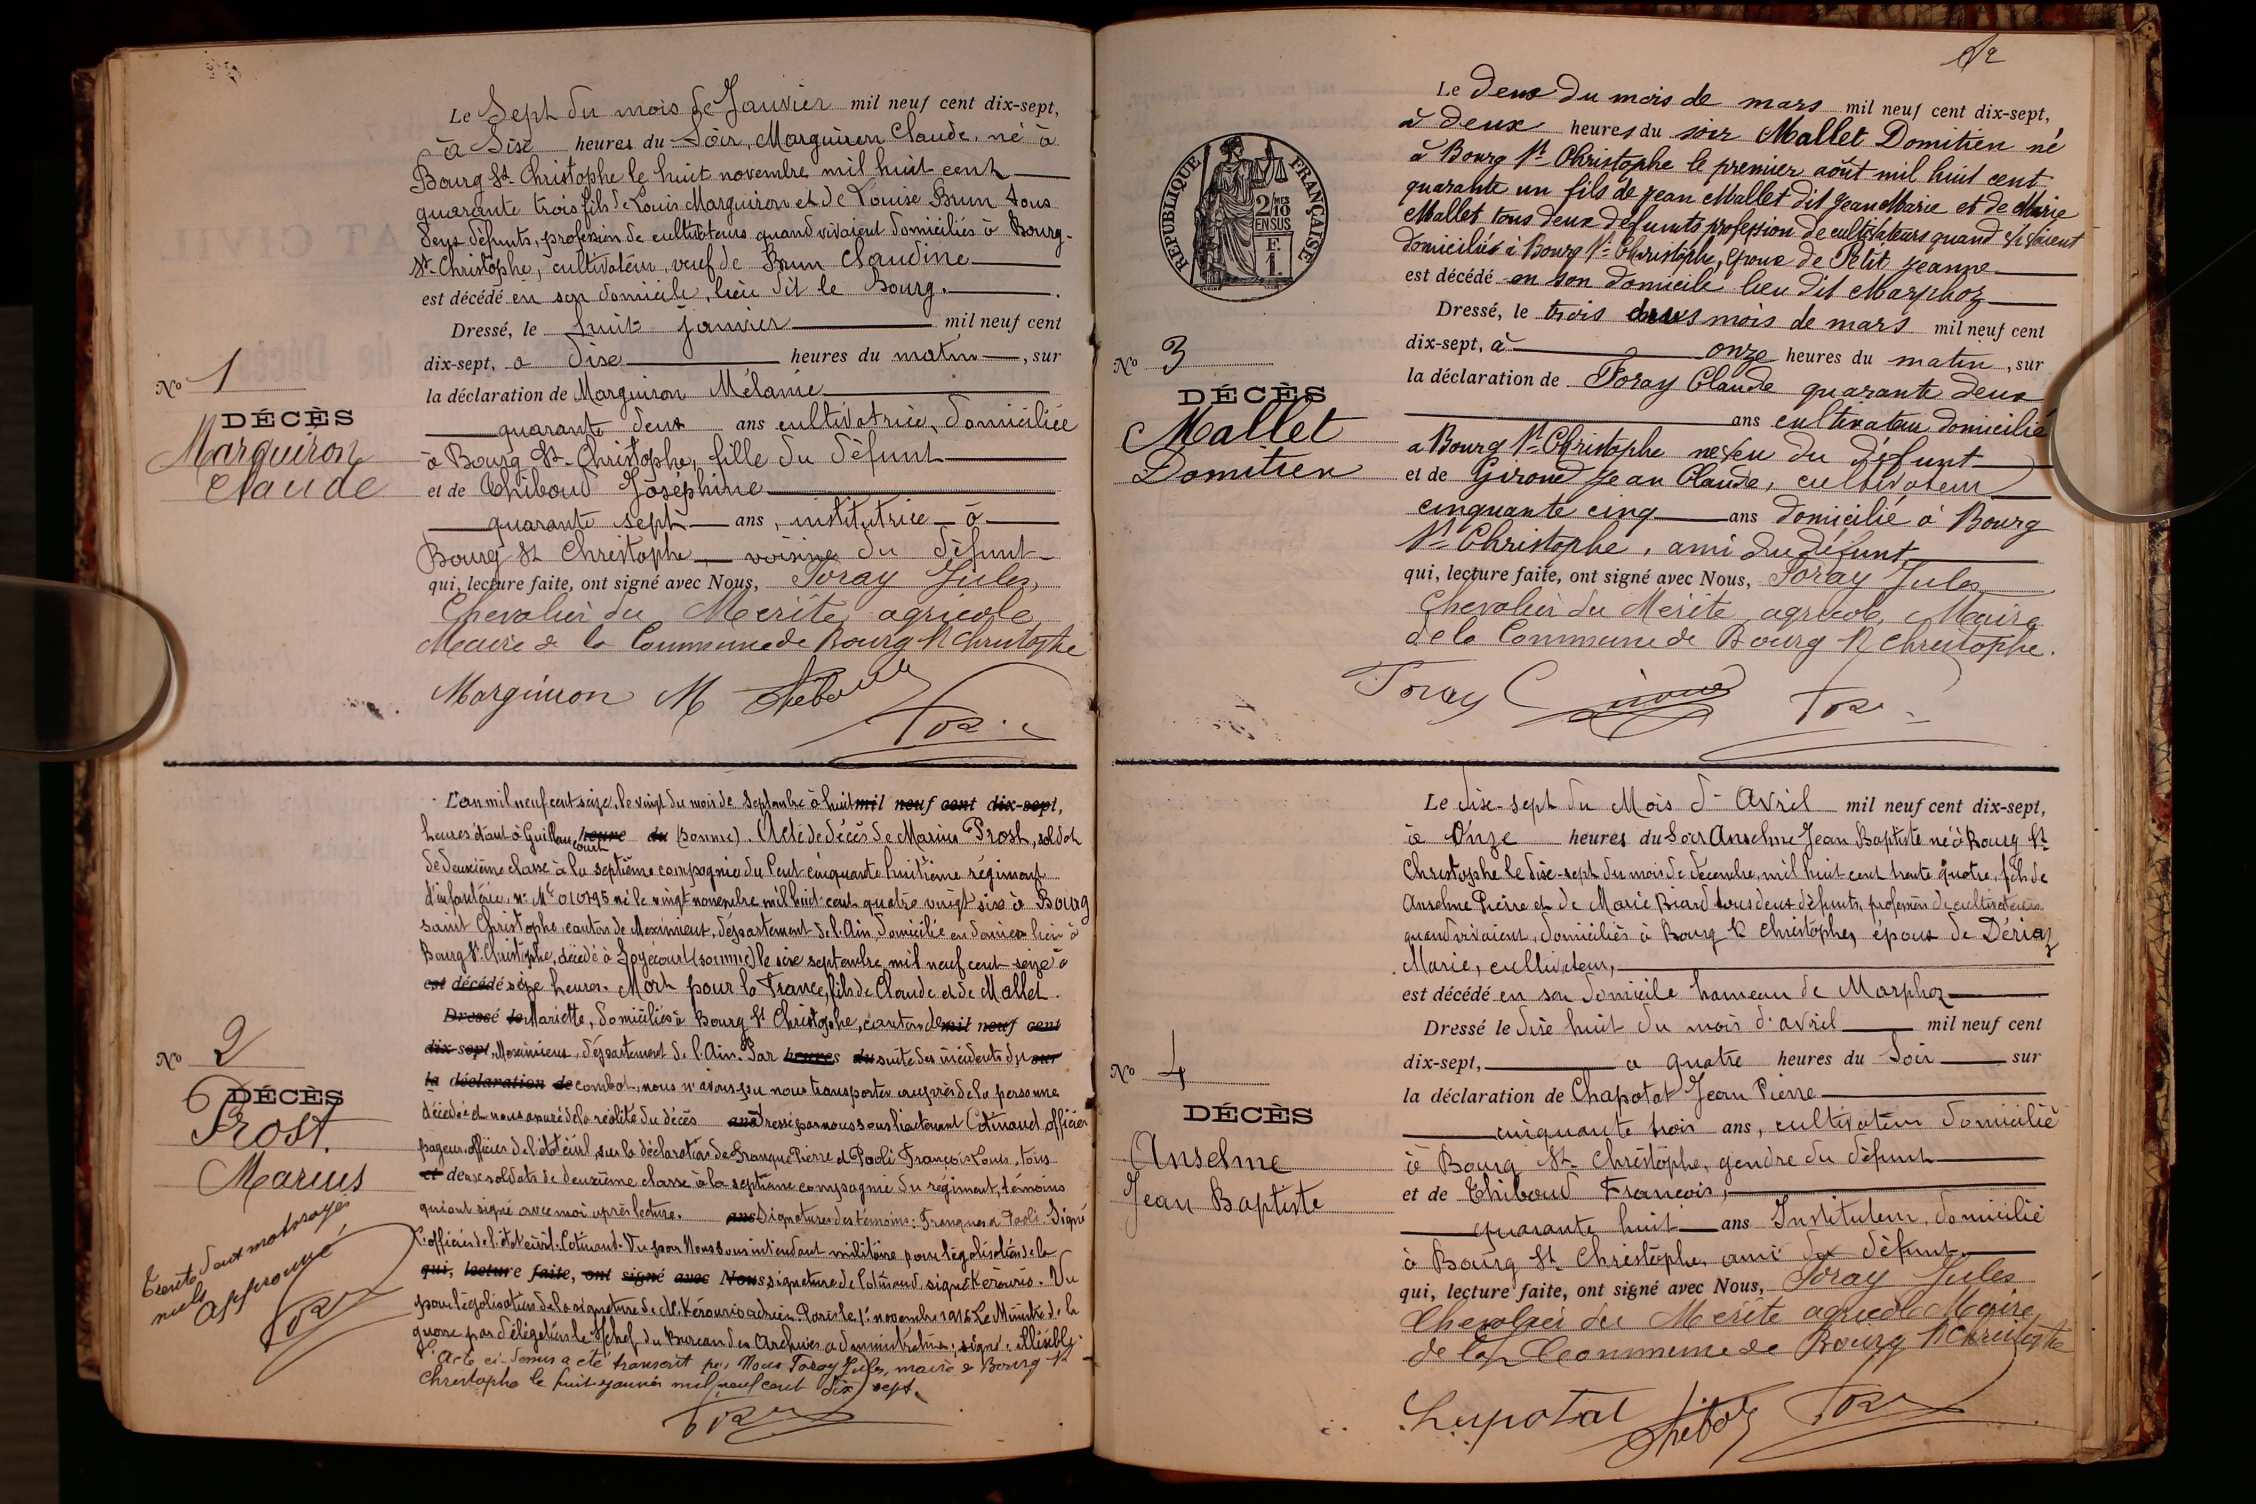 Le Sept du mois de Janvier mil neuf cent dix-sept,
à Dix heures du Soir, Marguiron Claude, né à
Bourg St Christophe le huit novembre mil huit cent
quarante trois fils de Louis Marguiron et de Louise Brun tous
deux défunts, profession de cultivateurs quand vivaient domiciliés à Bourg-
St-Christophe, cultivateur, veuf de Brun Claudine
est décédé en son domicile, lieu dit le Bourg.
Dressé, le huit janvier mil neuf cent
dix-sept, à dix heures du matin, sur
la déclaration de Marguiron Mélanie
quarante deux ans cultivatrice, domiciliée
à Bourg St-Christophe, fille du défunt
et de Thiboud Joséphine
quarante sept ans, institutrice à
Bourg St Christophe, voisine du défunt
qui, lecture faite, ont signé avec Nous, Foray Jules,
Chevalier du Merite agricole
Maire de la Commune de Bourg St Christophe
Marguiron M
No 1
DÉCÈS
Marguiron
Claude
L'an mil neuf cent seize, le vingt du mois de Septembre à huit mil neuf cent dix-sept,
heures étant à Guillaucourt heure du (Somme). Acte de décès de Marius Prost, soldat
de deuxième classe à la septième compagnie du Cent cinquante huitième régiment
d'infanterie, n° Mle 010795 né le vingt novembre mil huit cent quatre vingt six à Bourg
saint Christophe, canton de Meximieux, département de l'Ain, domicilié en dernier lieu à
Bourg St Christophe, décédé à Soyécourt (Somme) le seize septembre mil neuf cent seize à
est décédé seize heures. Mort pour la France, fils de Claude et de Mallet
Dressé le Mariette, domiciliés à Bourg St Christophe, canton de mil neuf cent
dix-sept, Meximieux, département de l'Ain. Par heures du suite des incidents du sur
la déclaration de combat, nous n'avons pu nous transporter auprès de la personne
décédée et nous assurer de la réalité du décès ans dressé par nous sous lieutenant Cotinaud officier
payeur, officier de l'état civil, sur la déclaration de Franque Pierre et Paoli François Louis, tous
et deux soldats de deuxième classe à la septième compagnie du régiment, témoins
qui ont signé avec moi après lecture. ans Signatures des témoins: Franque et Paoli. Signé
l'officier de l'état civil. Cotinaud. Vu par Nous Sous intendant militaire pour légalisation de la
qui, lecture faite, ont signé avec Nous signature de Cotinaud, signé Kérourio. Vu
pour légalisation de la signature de M. Kérourio Paris le 1er novembre 1916 Le Ministre de la
guerre par délégation le chef du Bureau des Archives administratives, signé: illisible
L'Acte ci-dessus a été transcrit par Nous Foray Jules, maire de Bourg St
Christophe le huit janvier mil neuf cent dix sept.
No 2
DÉCÈS
Prost
Marius
Trente deux mots rayés
nuls
approuvé
Le deux du mois de mars mil neuf cent dix-sept,
à deux heures du soir Mallet Domitien né
à Bourg St Christophe le premier août mil huit cent
quarante un fils de Jean Mallet dit Jean Marie et de Marie
Mallet tous deux défunts profession de cultivateurs quand vivaient
domiciliés à Bourg St Christophe, époux de Petit Jeanne
est décédé en son domicile lieu dit Marphoz
Dressé, le trois du mois de mars mil neuf cent
dix-sept, à onze heures du matin, sur
la déclaration de Foray Claude quarante deux
ans cultivateur domicilié
à Bourg St Christophe neveu du défunt
et de Giroud Jean Claude, cultivateur
cinquante cinq ans domicilié à Bourg
St Christophe, ami du défunt
qui, lecture faite, ont signé avec Nous, Foray Jules
Chevalier du Merite agricole, Maire
de la Commune de Bourg St Christophe.
Foray C
RÉPUBLIQUE FRANÇAISE
2/10
EN SUS
F.
1.
No 3
DÉCÈS
Mallet
Domitien
Le dix-sept du Mois d'Avril mil neuf cent dix-sept,
à Onze heures du Soir Anselme Jean Baptiste né à Bourg St
Christophe le dix-sept du mois de décembre, mil huit cent trente quatre, fils de
Anselme Pierre et de Marie Biard tous deux défunts, profession de cultivateurs
quand vivaient, domiciliés à Bourg St Christophe, époux de Dériaz
Marie, cultivateur,
est décédé en son domicile hameau de Marphoz
Dressé le dix huit du mois d'avril mil neuf cent
dix-sept, à quatre heures du Soir sur
la déclaration de Chapotat Jean Pierre
cinquante trois ans, cultivateur domicilié
à Bourg St-Christophe, gendre du défunt
et de Thiboud François,
quarante huit ans Instituteur, domicilié
à Bourg St Christophe, ami du défunt
qui, lecture faite, ont signé avec Nous, Foray Jules
Chevalier du Merite agricole Maire
de la Commune de Bourg St Christophe
Chapotat
No 4
DÉCÈS
Anselme
Jean Baptiste